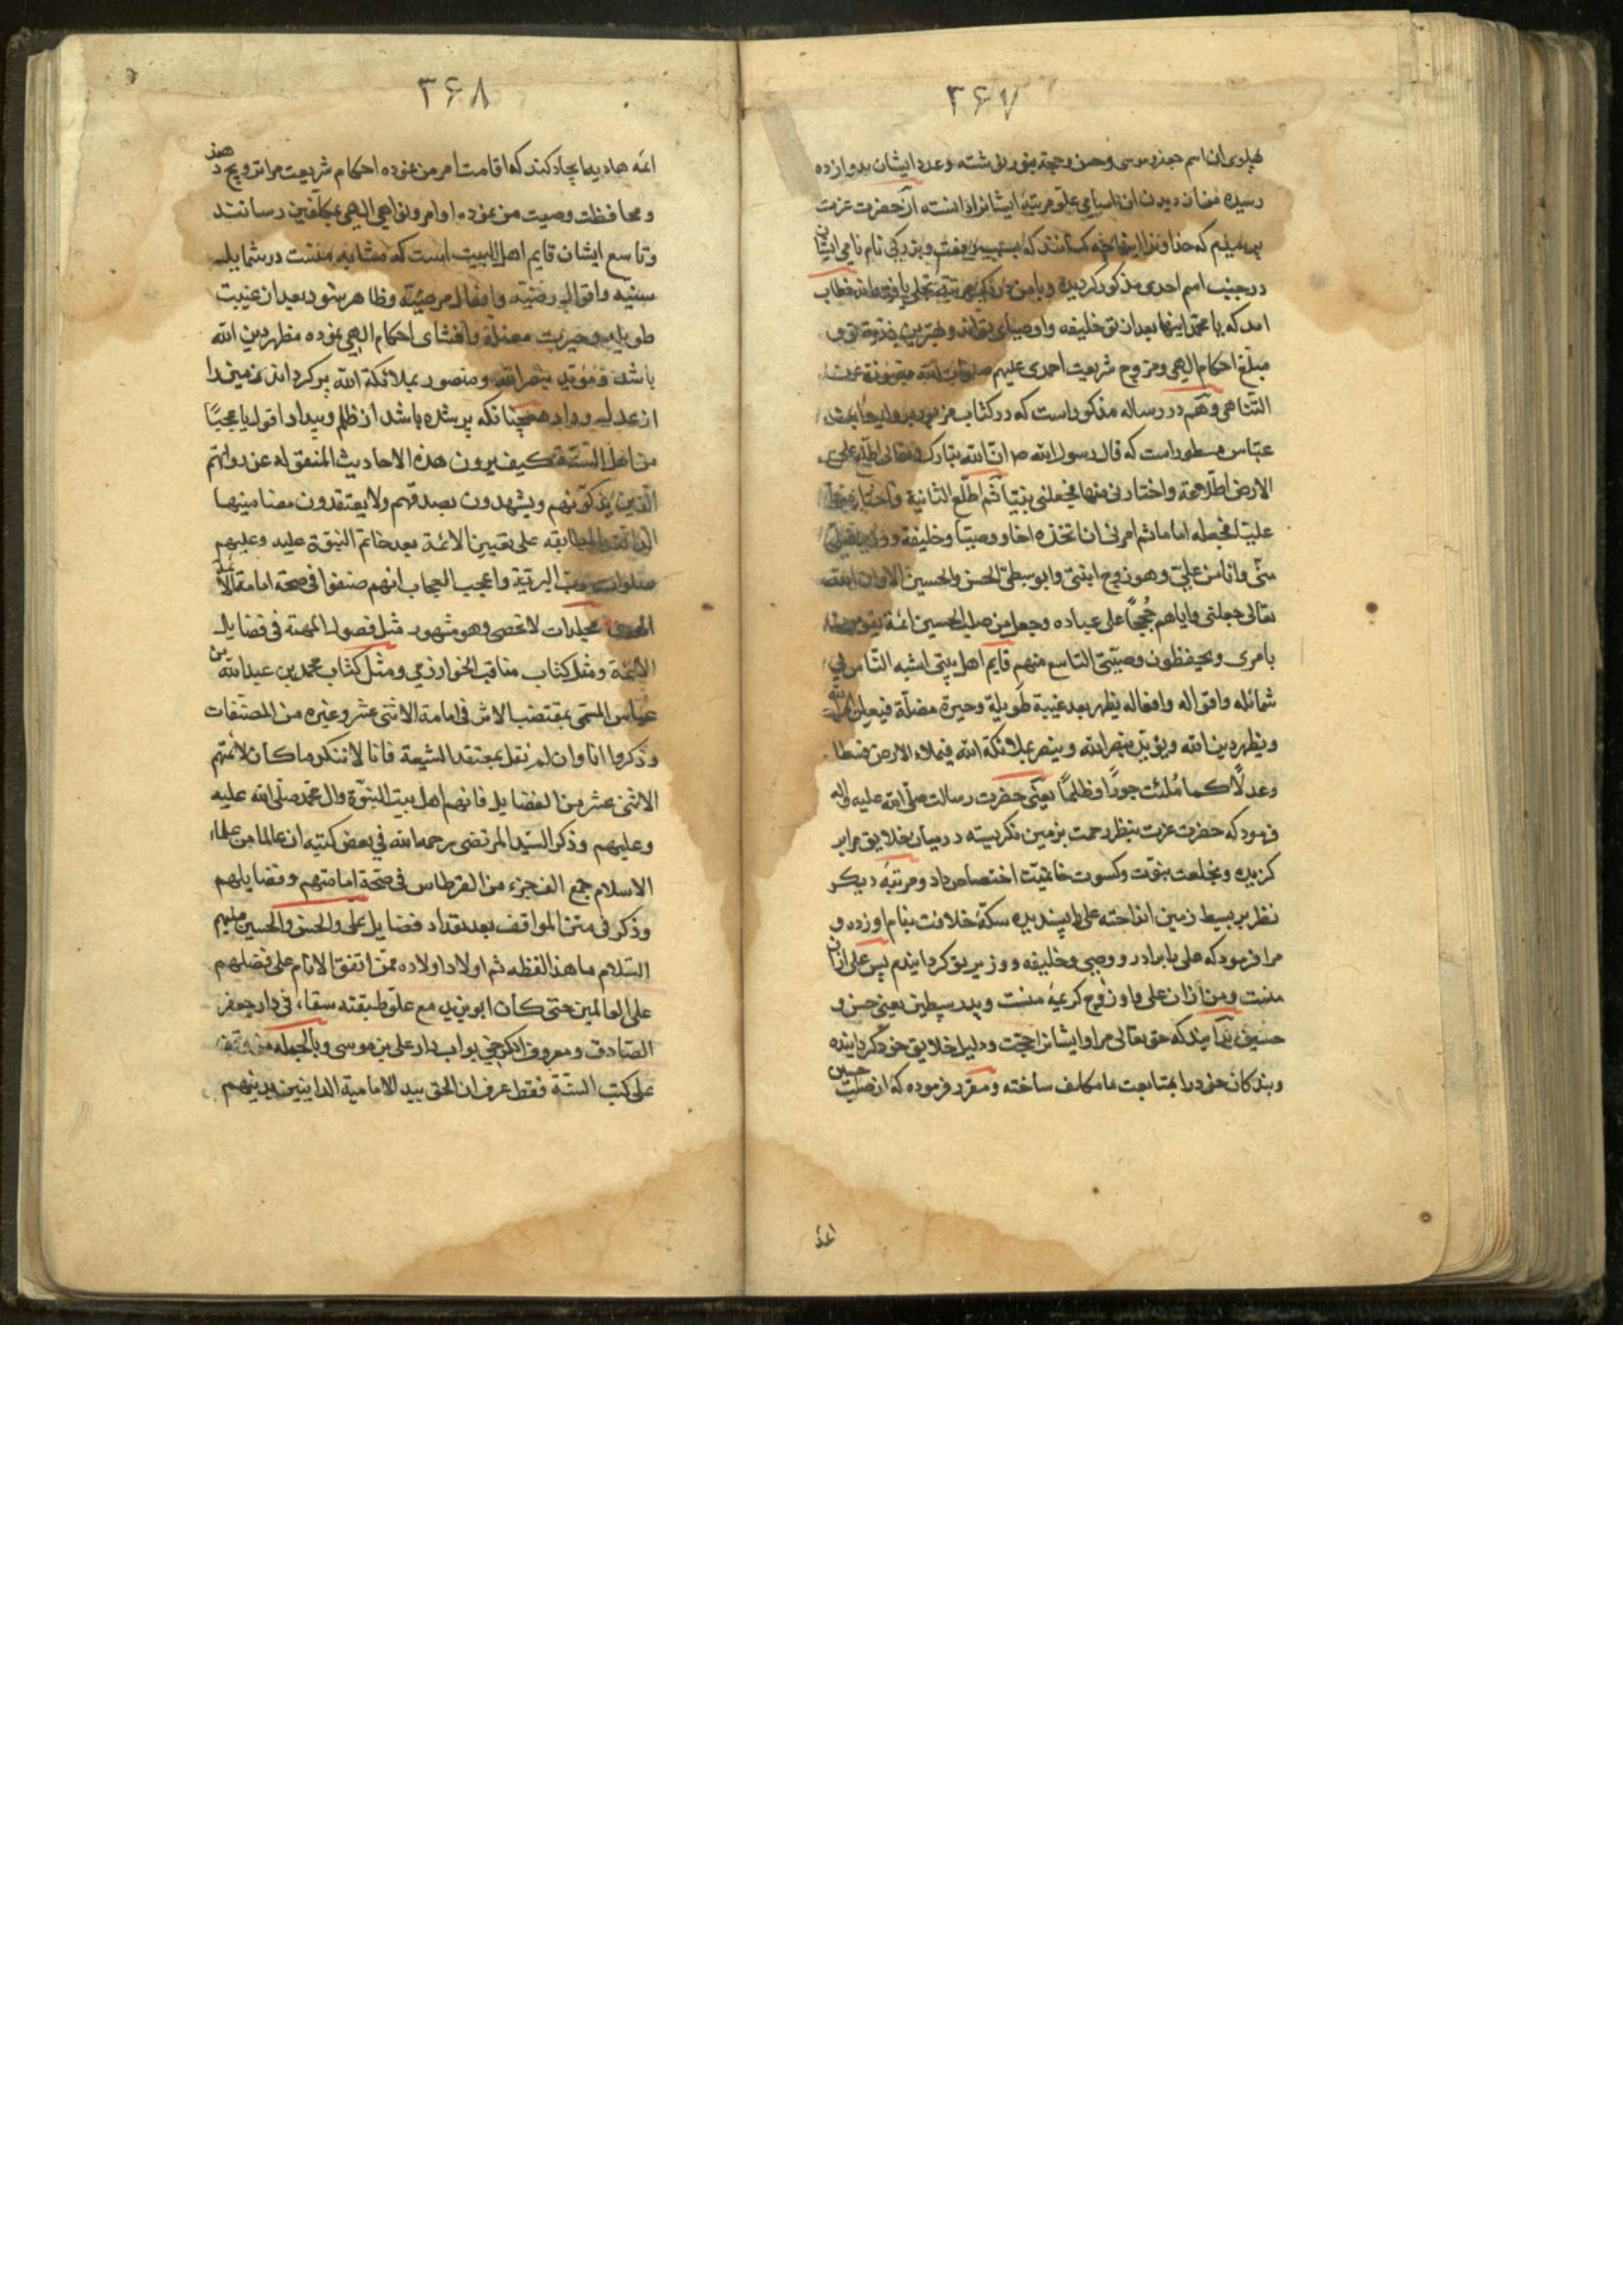 ۳۶۷
پهلوی ان اسم جعفر و موسی و حسن و حجة بنور نوشته و عدد ایشان بدوازده
رسیده من از دیدن ان اسامی علو مرتبهٔ ایشانرا دانسته از حضرت عزت
پرسیدم که خداوندا اینها چه کسانند که نام نامی ایشان
در جنب اسم احدی مذکور کردیده و با من خطاب
امد که یا محمد اینها بعد از تو خلیفه و اوصیای تواند و بهترین ذریهٔ تو و
مبلغ احکام الهی و مروج شریعت احمدی علیهم صلوات الله
التناهی و هم در رساله مذکور است که در کتاب مزبور
عباس مسطور است که قال رسول الله ص ان الله تبارک و تعالی اطلع علی
الارض اطلاعة و اختارنی منها فجعلنی نبیا ثم اطلع الثانیة و اختار منها
علیا فجعله اماما ثم امرنی ان اتخذه اخا و وصیا و خلیفة و وزیرا فعلی
منی و انا من علی و هو زوج ابنتی و ابو سبطی الحسن و الحسین الا و ان الله
تعالی جعلنی و ایاهم حججا علی عباده و جعل من صلب الحسین ائمة یقومون
بامری و یحفظون وصیتی التاسع منهم قایم اهل بیتی اشبه الناس بی
شمائله و اقواله و افعاله یظهر بعد غیبة طویلة و حیرة مضلة فیعلن امر الله
و یظهر دین الله و یؤید بنصر الله و ینصر بملائکة الله فیملاء الارض قسطا
و عدلا کما ملئت جورا و ظلما یعنی حضرت رسالت صلی الله علیه و اله
فرمود که حضرت عزت بنظر رحمت بزمین نکریسته در میان خلایق مرا بر
کزیده و بخلعت نبوت و کسوت خاتمیت اختصاص داد و مرتبهٔ دیکر
نظر بر بسیط زمین انداخته علی را پسندیده سکهٔ خلافت بنام او زده و
مرا فرمود که علی را برادر و وصی و خلیفه و وزیر خود کردانیدم پس علی از ان
منست و من از ان علی و او زوج کریمهٔ منست و پدر سبطین یعنی حسن و
حسین بدانید که حق تعالی مرا و ایشانرا حجت و دلیل خلایق خود کردانیده
و بندکان خود را بمتابعت ما مکلف ساخته و مقرر فرموده که از صلب حسین
ائمهٔ
۳۶۸
ائمه هادیه ایجاد کند که اقامت امر من نموده احکام شریعت مرا ترویج دهند
و محافظت وصیت من نموده اوامر و نواهی الهی بمکلفین رسانند
و تاسع ایشان قایم اهل البیت است که مشابه منست در شمایل
سنیه و اقوال رضیه و افعال مرضیه و ظاهر شود بعد از غیبت
طویله و حیرت مضله و افشای احکام الهی نموده مظهر دین الله
باشد و مؤید بنصر الله و منصور بملائکة الله پر کرداند زمین را
از عدل و داد همچنانکه پر شده باشد از ظلم و بیداد اقول یا عجبا
من اهل السنة کیف یرون هذه الاحادیث المنقولة عن رواتهم
الذین یزکونهم و یشهدون بصدقهم و لا یعتقدون مضامینها
الدالة بالمطابقه علی تعیین الائمة بعد خاتم النبوة علیه و علیهم
صلوات رب البریة و اعجب العجاب انهم صنفوا فی صحة امامة آل
مجلدات لا تحصی و هو مشهور مثل فصول المهمة فی فضایل
الائمة و مثل کتاب مناقب الخوارزمی و مثل کتاب محمد بن عبد الله بن
عباس المسمی بمقتضب الاثر فی امامة الاثنی عشر و غیره من المصنفات
و ذکروا انا و ان لم نقل بمعتقد الشیعة فانا لا ننکر ما کان لائمتهم
الاثنی عشر من الفضایل فانهم اهل بیت النبوة و ال محمد صلی الله علیه
و علیهم و ذکر السید المرتضی رحمه الله فی بعض کتبه ان عالما من علماء
الاسلام جمع الف جزء من القرطاس فی صحة امامتهم و فضایلهم
و ذکر فی متن المواقف بعد تعداد فضایل علی و الحسن و الحسین علیهم
السلام ما هذا لفظه ثم اولاد اولاده ممن اتفق الانام علی فضلهم
علی العالمین حتی کان ابو یزید مع علو طبقته سقاء فی دار جعفر
الصادق و معروف الکرخی بواب دار علی بن موسی و بالجمله من وقف
علی کتب السنة فقط عرف ان الحق بید الامامیة الداینین بدینهم